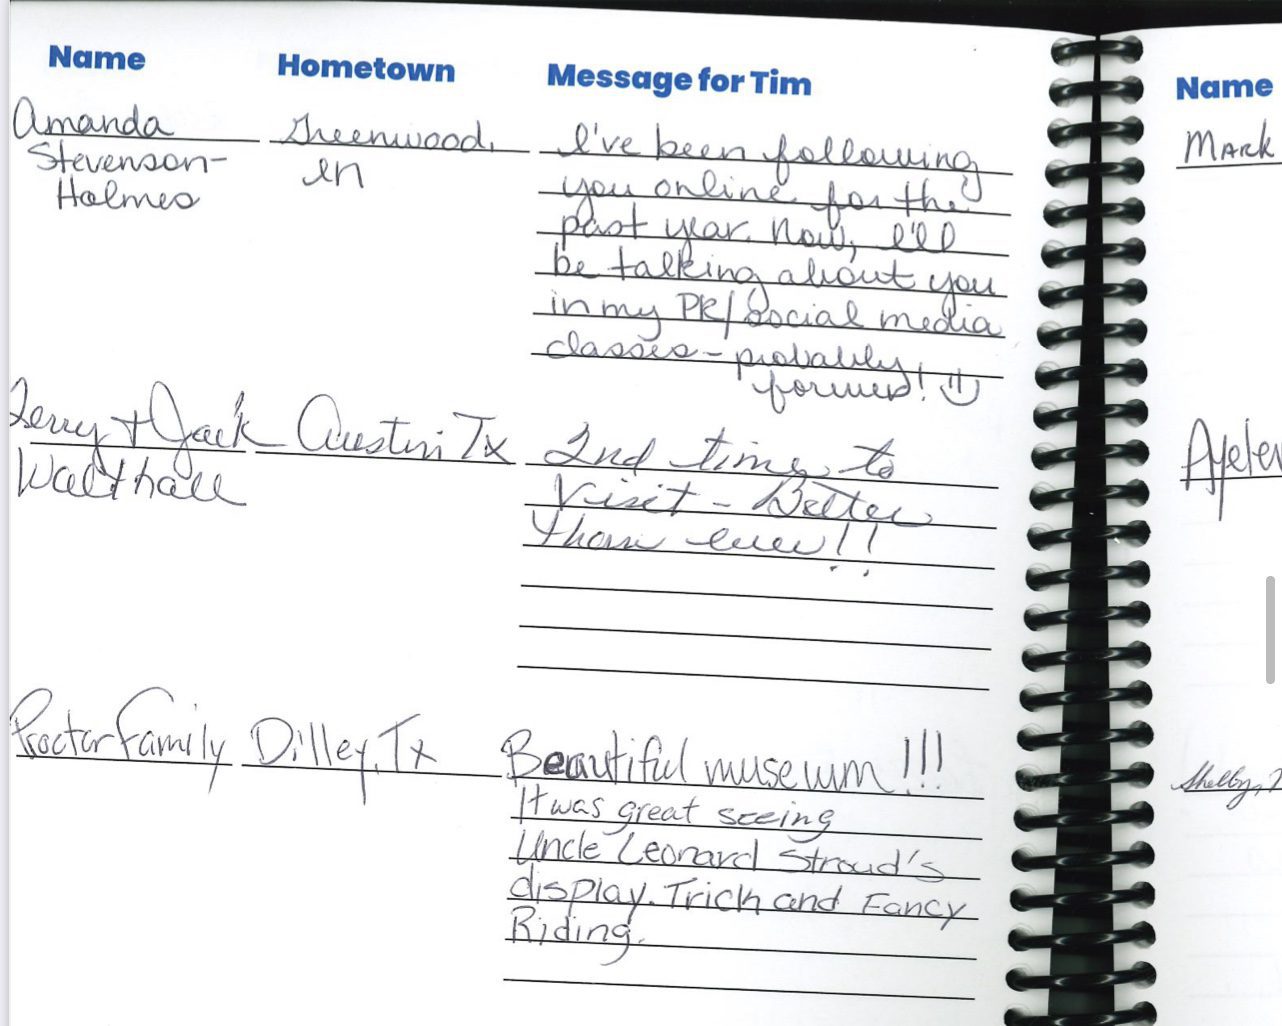 Name Hometown Message for Tim
Amanda Greenwood, I've been following
Stevenson- in you online for the
Holmes past year. Now, I'll
be talking about you
in my PR/social media
classes - probably
forever! :)
Terry + Jack Austin Tx 2nd time to
Walthall Visit - Better
than ever!!
Proctor Family Dilley, Tx Beautiful museum!!!
It was great seeing
Uncle Leonard Stroud's
display. Trick and Fancy
Riding.
Name
Mark
Shelby,